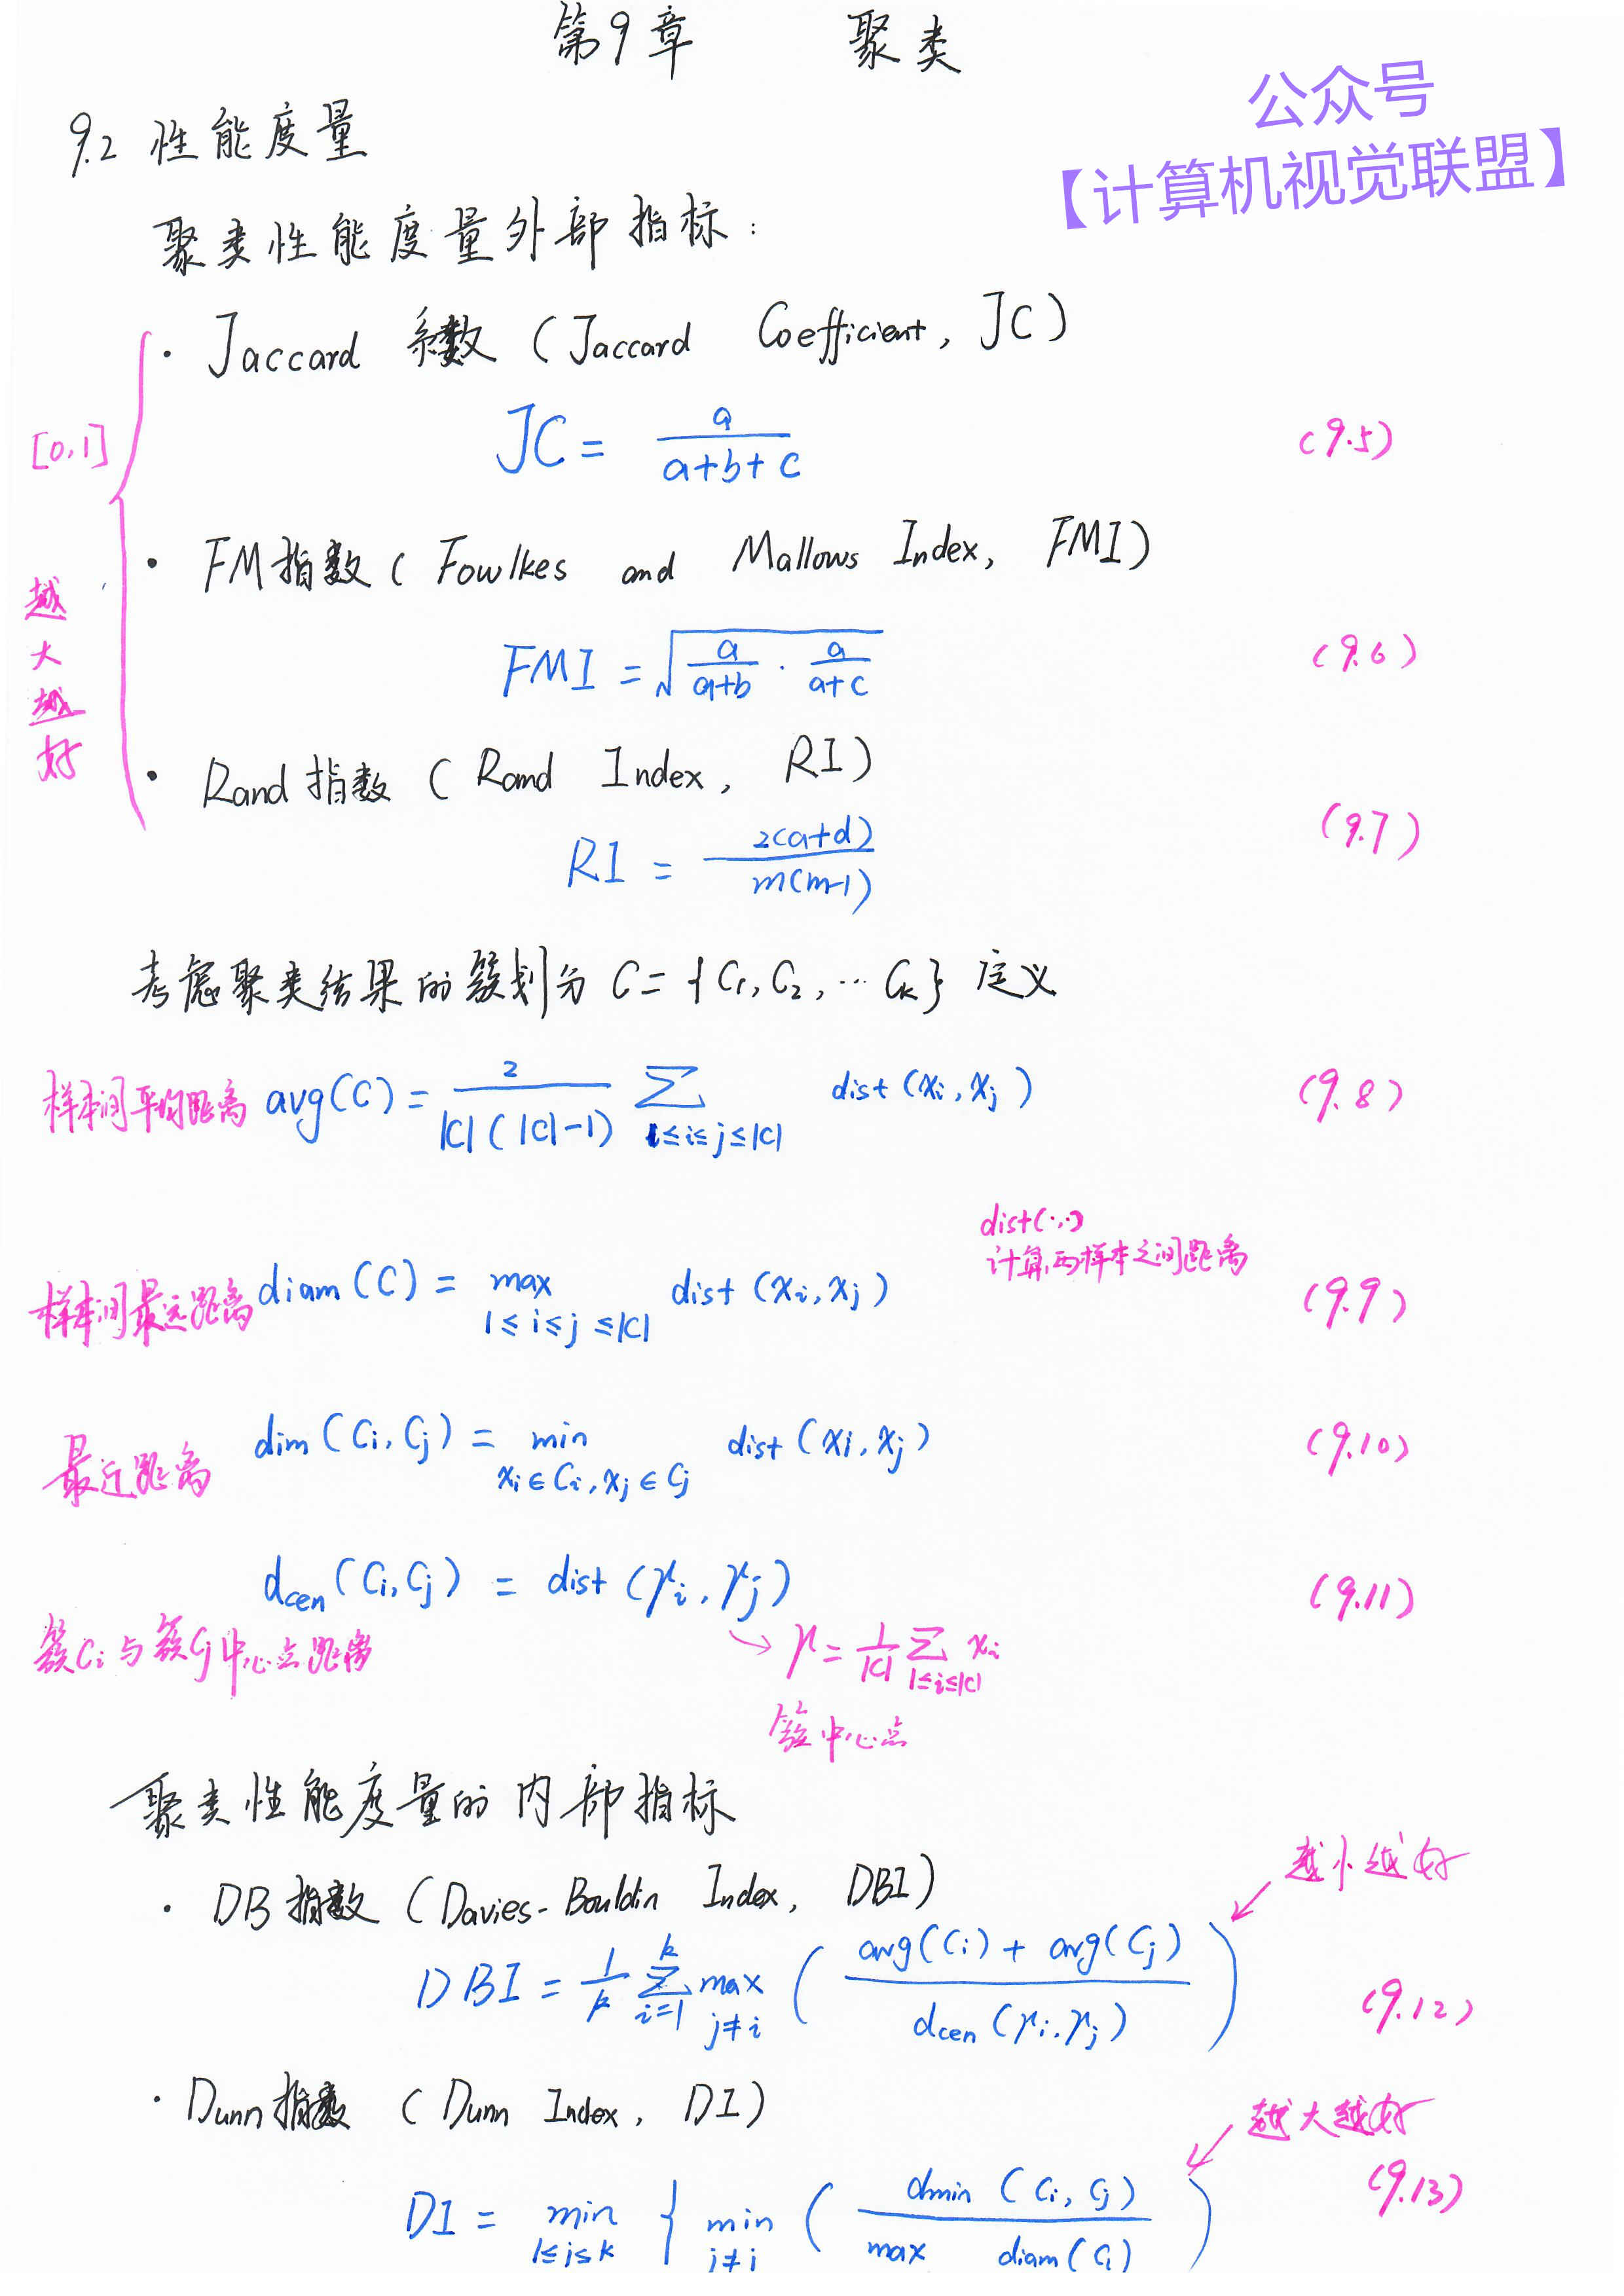 第9章 聚类
公众号
【计算机视觉联盟】
9.2 性能度量
聚类性能度量外部指标:
· Jaccard 系数 (Jaccard Coefficient, JC)
[0,1]
越大越好
JC = a / (a+b+c) (9.5)
· FM指数 (Fowlkes and Mallows Index, FMI)
FMI = √( a/(a+b) · a/(a+c) ) (9.6)
· Rand指数 (Rand Index, RI)
RI = 2(a+d) / m(m-1) (9.7)
考虑聚类结果的簇划分 C={C₁,C₂,…Cₖ} 定义
样本间平均距离 avg(C) = 2 / |C|(|C|-1) ∑ 1≤i≤j≤|C| dist(xᵢ,xⱼ) (9.8)
dist(·,·)
计算两样本之间距离
样本间最远距离 diam(C) = max 1≤i≤j≤|C| dist(xᵢ,xⱼ) (9.9)
最近距离 dim(Cᵢ,Cⱼ) = min xᵢ∈Cᵢ,xⱼ∈Cⱼ dist(xᵢ,xⱼ) (9.10)
dcen(Cᵢ,Cⱼ) = dist(μᵢ,μⱼ) (9.11)
簇Cᵢ与簇Cⱼ中心点距离
→ μ = 1/|C| ∑ 1≤i≤|C| xᵢ
簇中心点
聚类性能度量的内部指标
· DB指数 (Davies-Bouldin Index, DBI)
越小越好
DBI = 1/k ∑ i=1 k max j≠i ( avg(Cᵢ)+avg(Cⱼ) / dcen(μᵢ,μⱼ) ) (9.12)
· Dunn指数 (Dunn Index, DI)
越大越好
DI = min 1≤j≤k { min j≠i ( dmin(Cᵢ,Cⱼ) / max diam(Cₗ) ) (9.13)